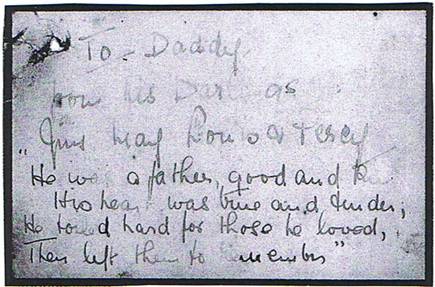 To - Daddy
from his Darlings
Jim May Louis & Percy
"He was a father, good and
His heart was true and tender;
He toiled hard for those he loved,
Then left them to remember"